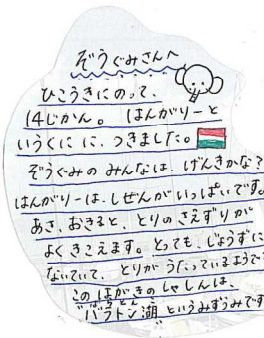 ぞうぐみさんへ
ひこうきにのって、
14じかん。 はんがりーと
いうくにに、つきました。
ぞうぐみの みんなは、げんきかな?
はんがりーは、しぜんがいっぱいです。
あさ、おきると、とりの さえずりが
よく きこえます。とっても、じょうずに
ないていて、とりが うたっているようです
この はがきの しゃしんは、
"バラトン湖"というみずうみです